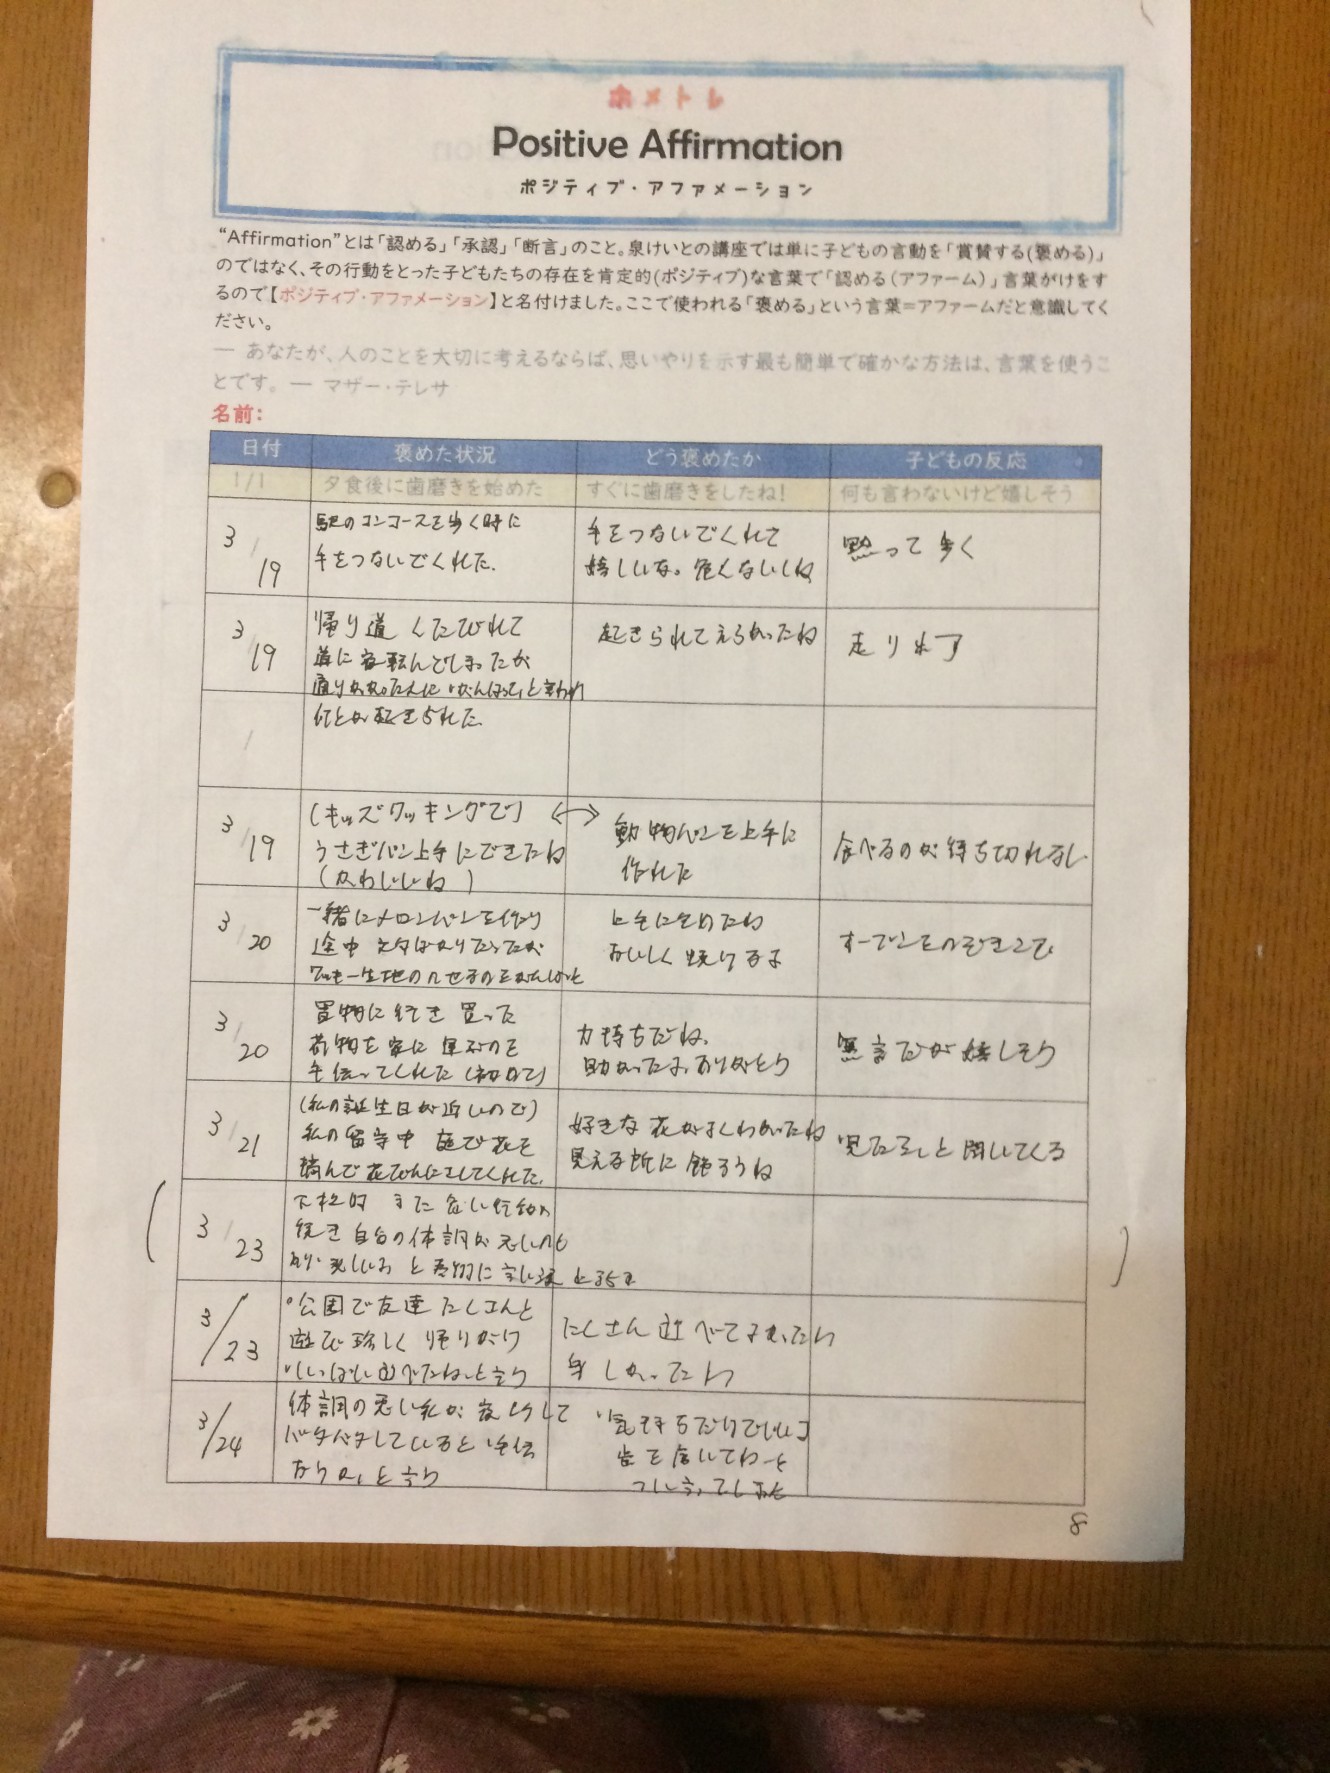 ホメトレ
Positive Affirmation
ポジティブ・アファメーション
“Affirmation”とは「認める」「承認」「断言」のこと。泉けいとの講座では単に子どもの言動を「賞賛する(褒める)」
のではなく、その行動をとった子どもたちの存在を肯定的(ポジティブ)な言葉で「認める(アファーム)」言葉がけをす
るので【ポジティブ・アファメーション】と名付けました。ここで使われる「褒める」という言葉=アファームだと意識してく
ださい。
― あなたが、人のことを大切に考えるならば、思いやりを示す最も簡単で確かな方法は、言葉を使うこ
とです。 ― マザー・テレサ
名前:
日付 褒めた状況 どう褒めたか 子どもの反応
1/1 夕食後に歯磨きを始めた すぐに歯磨きをしたね! 何も言わないけど嬉しそう
3/19
駅のコンコースを歩く時に
手をつないでくれた。
手をつないでくれて
嬉しいな。危くないしね
黙って歩く
3/19
帰り道 くたびれて
道に寝転んでしまったが
通りかかった人に「がんばって」と言われ
何とか起きられた。
起きられてえらかったね
走り出す
/
3/19
(キッズクッキングで)
うさぎパン上手にできたね
(かわいいね)
動物パンを上手に
作れた
食べるのが待ち切れない
3/20
一緒にメロンパンを作り
途中
クッキー生地ののせるのをがんばった
上手にできたね
おいしく焼けるよ
オーブンをのぞきこむ
3/20
買物に行き 買った
荷物を家に運ぶのを
手伝ってくれた(初めて)
力持ちだね。
助かったよ、ありがとう
無言だが嬉しそう
3/21
(私の誕生日が近いので)
私の留守中 庭で花を
摘んで花びんにさしてくれた。
好きな花がよくわかったね
見える所に飾ろうね
見た?と聞いてくる
3/23
また危い行動が
続き 自分の体調が悪いのも
3/23
公園で友達たくさんと
遊び 珍しく帰りがけ
「いっぱい遊べたね」と言う
たくさん遊べてよかったね
楽しかったね
3/24
体調の悪い私が夜
バタバタしていると「手伝
おうか」と言う
「気持ちだけでいい
つい言ってしまった
8